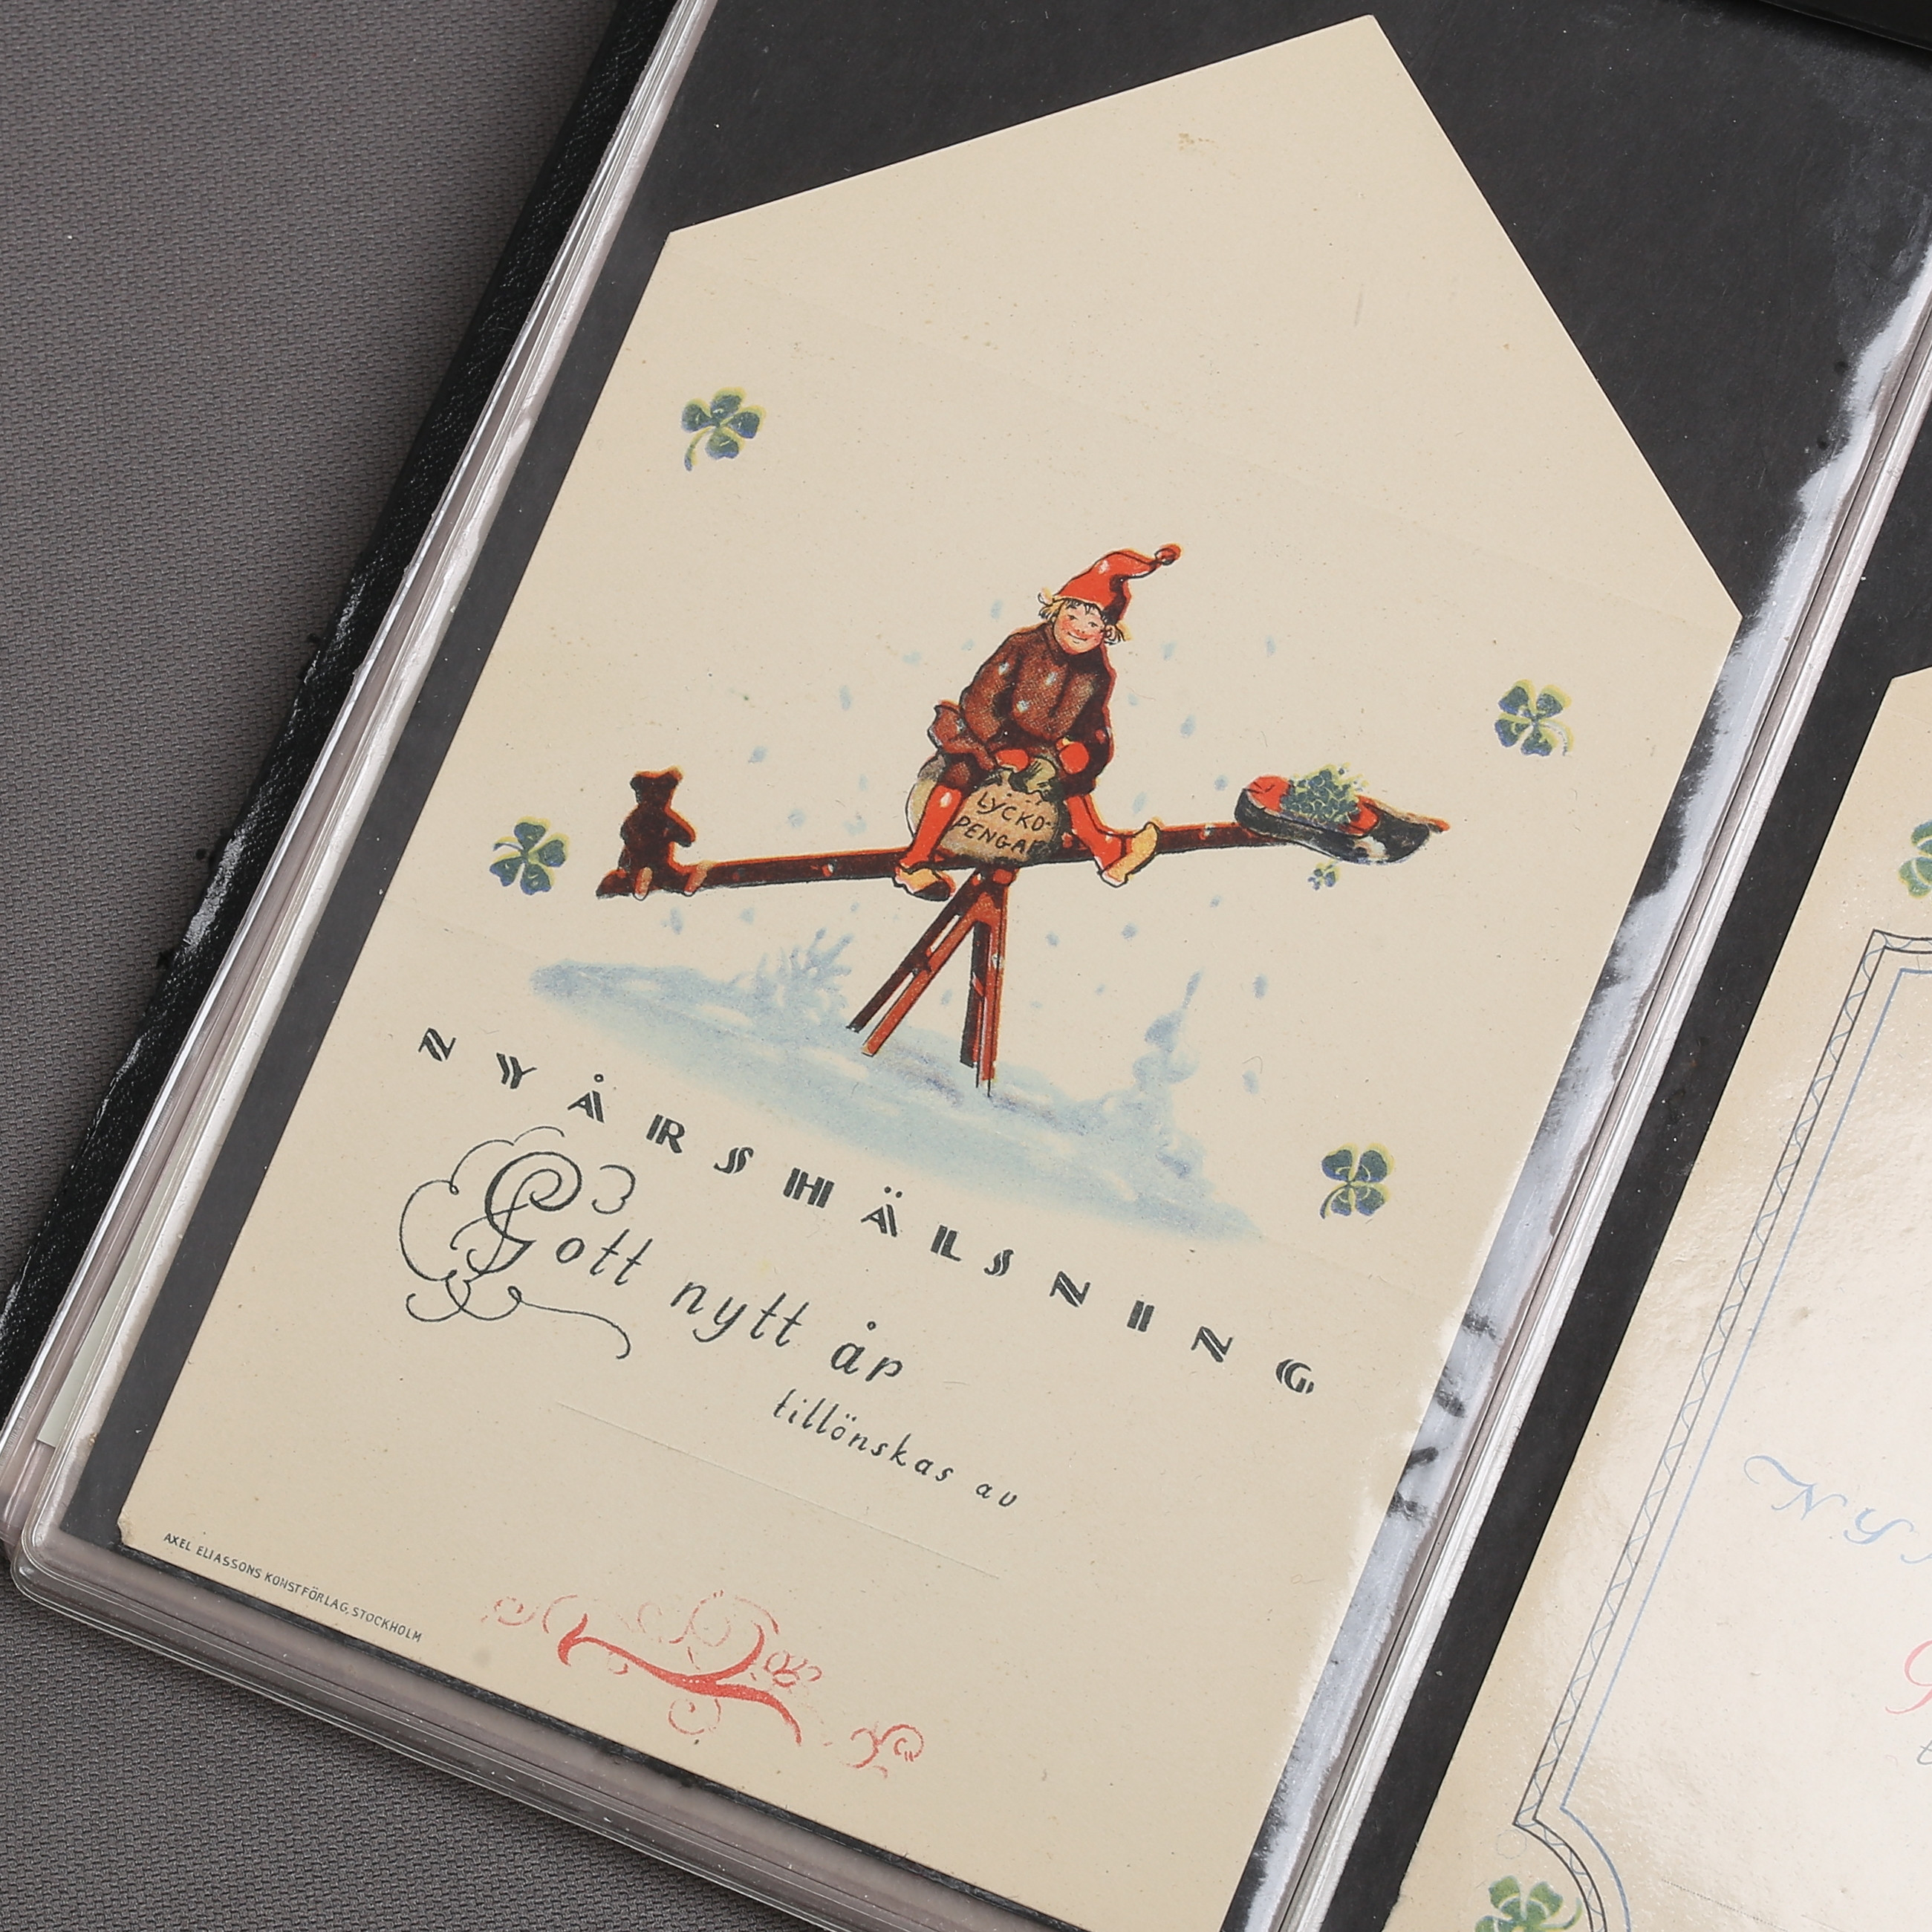 LYCKO-
PENGAR
NYÅRSHÄLSNING
Gott nytt år
tillönskas av
AXEL ELIASSONS KONSTFÖRLAG, STOCKHOLM